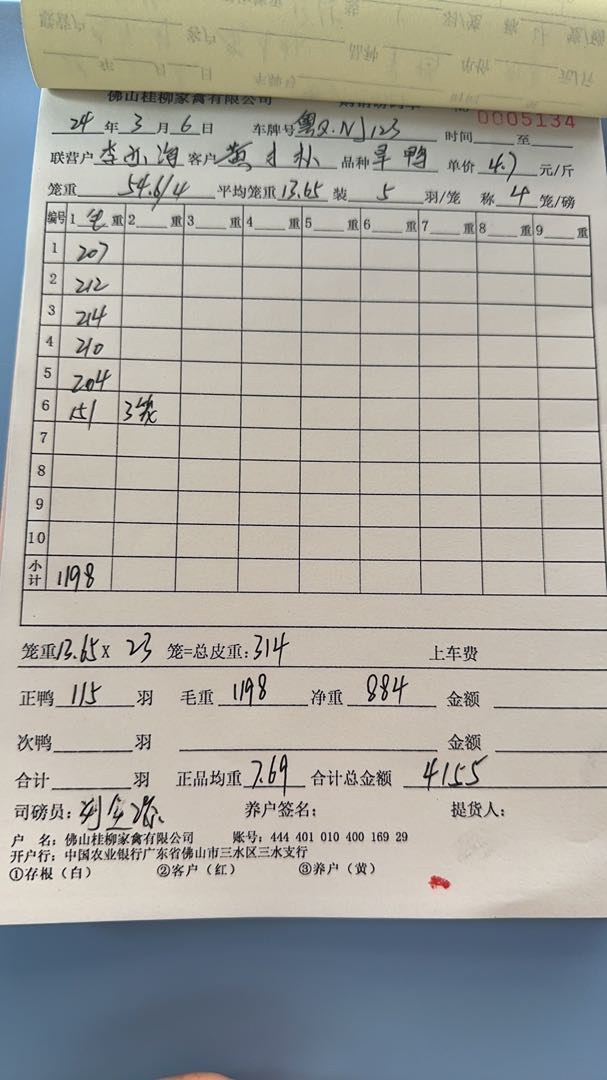 佛山桂柳家禽有限公司
0005134
24 年 3 月 6 日 车牌号 粤Q.NJ123 时间 至
联营户 李 海 客户 黄 朴 品种 旱鸭 单价 4.7 元/斤
笼重 54.6/4 平均笼重 13.65 装 5 羽/笼 称 4 笼/磅
编号 1 毛 重 2 重 3 重 4 重 5 重 6 重 7 重 8 重 9 重
1 207
2 212
3 214
4 210
5 204
6 151 3笼
7
8
9
10
小计 1198
笼重 13.65 X 23 笼=总皮重: 314 上车费
正鸭 115 羽 毛重 1198 净重 884 金额
次鸭 羽 金额
合计 羽 正品均重 7.69 合计总金额 4155
司磅员: 养户签名: 提货人:
户 名: 佛山桂柳家禽有限公司 账号: 444 401 010 400 169 29
开户行: 中国农业银行广东省佛山市三水区三水支行
①存根（白） ②客户（红） ③养户（黄）